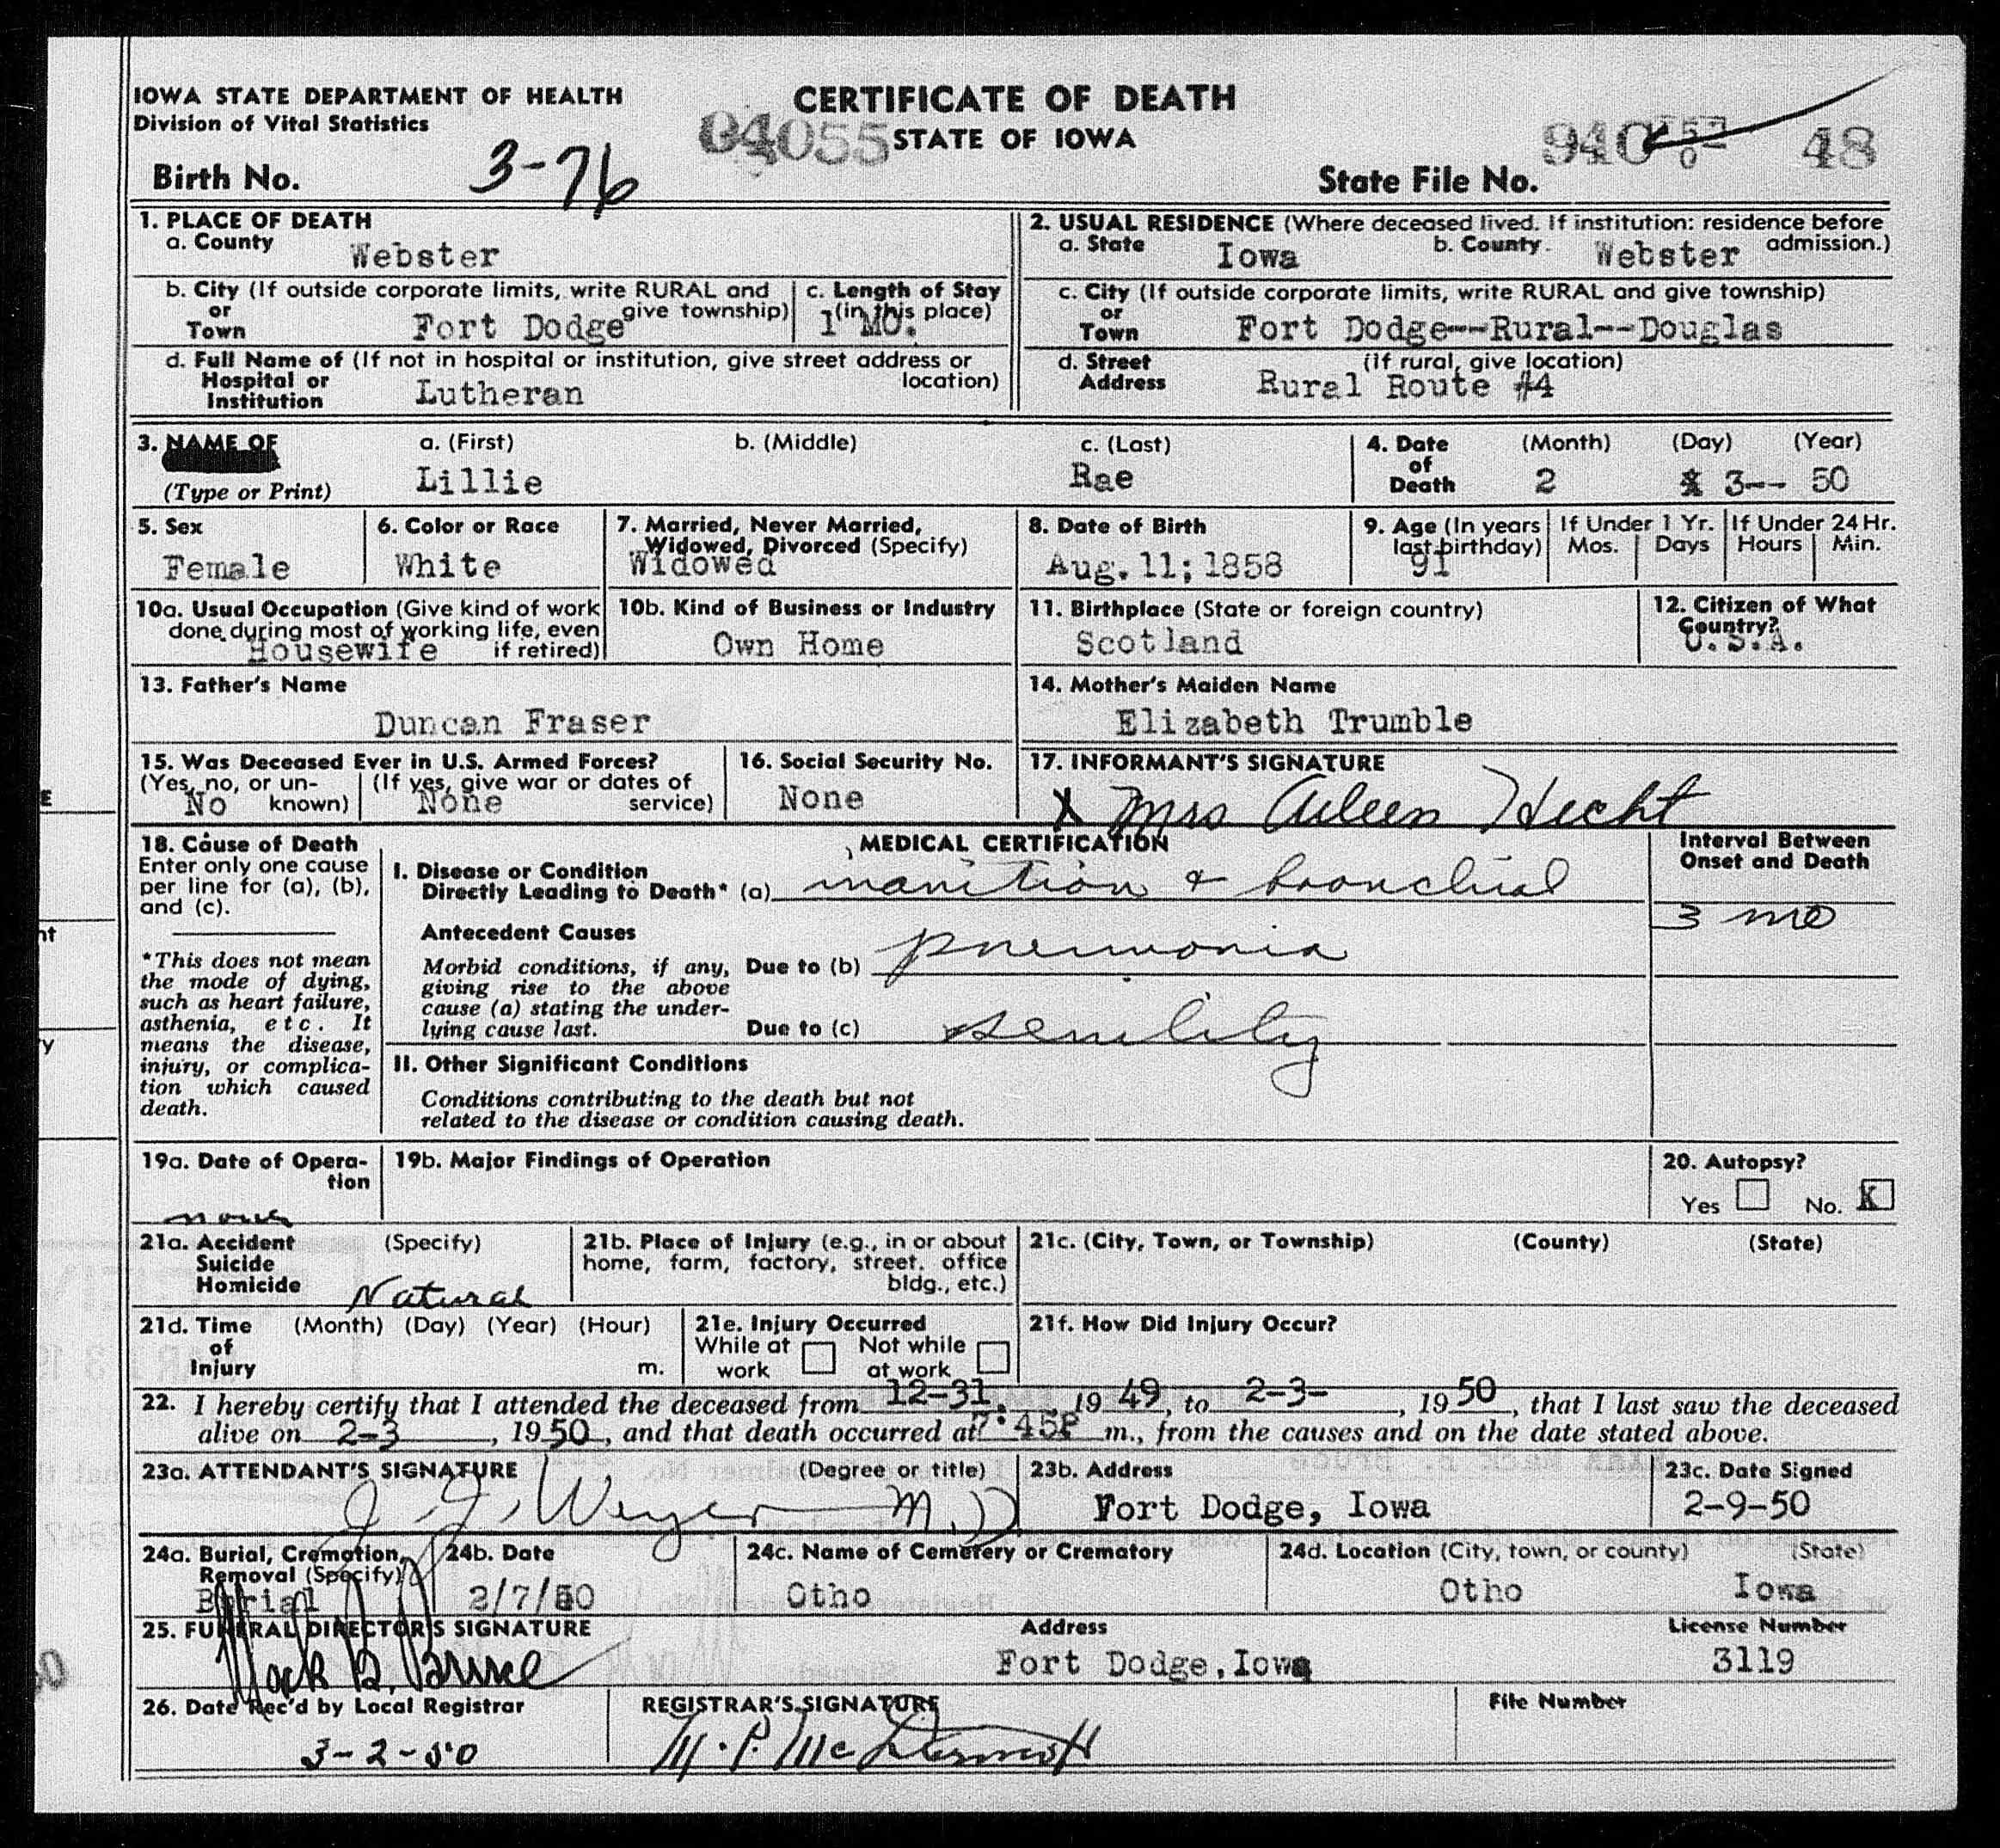 IOWA STATE DEPARTMENT OF HEALTH
Division of Vital Statistics
CERTIFICATE OF DEATH
04055 STATE OF IOWA
940 48
Birth No. 3-76
State File No.
1. PLACE OF DEATH
a. County Webster
b. City (If outside corporate limits, write RURAL and give township)
or Town Fort Dodge
c. Length of Stay (in this place)
1 Mo.
d. Full Name of (If not in hospital or institution, give street address or location)
Hospital or Institution Lutheran
2. USUAL RESIDENCE (Where deceased lived. If institution: residence before admission.)
a. State Iowa b. County. Webster
c. City (If outside corporate limits, write RURAL and give township)
or Town Fort Dodge--Rural--Douglas
d. Street Address (If rural, give location)
Rural Route #4
3. NAME OF
(Type or Print)
a. (First) b. (Middle) c. (Last)
Lillie Rae
4. Date of Death (Month) (Day) (Year)
2 3-- 50
5. Sex
Female
6. Color or Race
White
7. Married, Never Married, Widowed, Divorced (Specify)
Widowed
8. Date of Birth
Aug. 11; 1858
9. Age (In years last birthday)
91
If Under 1 Yr.
Mos. Days
If Under 24 Hr.
Hours Min.
10a. Usual Occupation (Give kind of work done during most of working life, even if retired)
Housewife
10b. Kind of Business or Industry
Own Home
11. Birthplace (State or foreign country)
Scotland
12. Citizen of What Country?
U.S.A.
13. Father's Name
Duncan Fraser
14. Mother's Maiden Name
Elizabeth Trumble
15. Was Deceased Ever in U.S. Armed Forces?
(Yes, no, or unknown) (If yes, give war or dates of service)
No None
16. Social Security No.
None
17. INFORMANT'S SIGNATURE
X Mrs Aileen Hecht
18. Cause of Death
Enter only one cause
per line for (a), (b),
and (c).
*This does not mean
the mode of dying,
such as heart failure,
asthenia, etc. It
means the disease,
injury, or complica-
tion which caused
death.
MEDICAL CERTIFICATION
I. Disease or Condition
Directly Leading to Death* (a) inanition & bronchial
Antecedent Causes
Morbid conditions, if any,
giving rise to the above
cause (a) stating the under-
lying cause last.
Due to (b) pneumonia
Due to (c) senility
II. Other Significant Conditions
Conditions contributing to the death but not
related to the disease or condition causing death.
Interval Between
Onset and Death
3 mo
19a. Date of Opera-
tion
none
19b. Major Findings of Operation
20. Autopsy?
Yes No. X
21a. Accident (Specify)
Suicide
Homicide Natural
21b. Place of Injury (e.g., in or about
home, farm, factory, street, office
bldg., etc.)
21c. (City, Town, or Township) (County) (State)
21d. Time (Month) (Day) (Year) (Hour)
of
Injury m.
21e. Injury Occurred
While at work Not while at work
21f. How Did Injury Occur?
22. I hereby certify that I attended the deceased from 12-31, 19 49, to 2-3-, 19 50, that I last saw the deceased
alive on 2-3, 19 50, and that death occurred at 7:45P m., from the causes and on the date stated above.
23a. ATTENDANT'S SIGNATURE (Degree or title)
J J Weyer M.D
23b. Address
Fort Dodge, Iowa
23c. Date Signed
2-9-50
24a. Burial, Cremation,
Removal (Specify)
Burial
24b. Date
2/7/50
24c. Name of Cemetery or Crematory
Otho
24d. Location (City, town, or county) (State)
Otho Iowa
25. FUNERAL DIRECTOR'S SIGNATURE
Mack B. Bruce
Address
Fort Dodge, Iowa
License Number
3119
26. Date Rec'd by Local Registrar
3-2-50
REGISTRAR'S SIGNATURE
M. P. McDermott
File Number